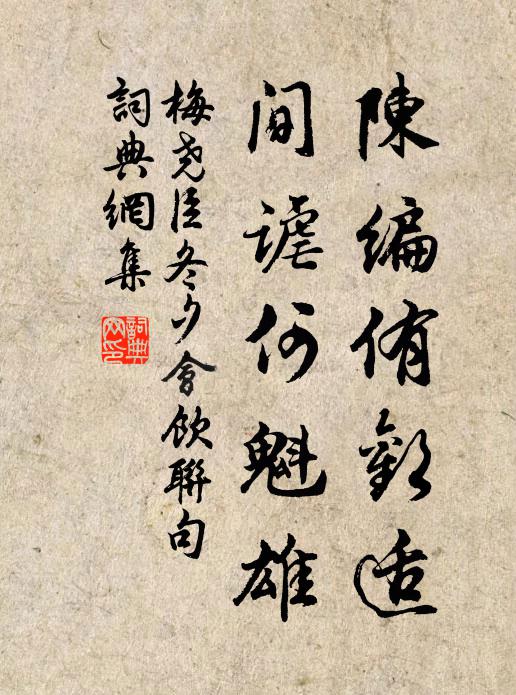 陳編侑歡適
間謔何魁雄
梅尧臣冬夕會飲聯句
詞典網集
詞典网印